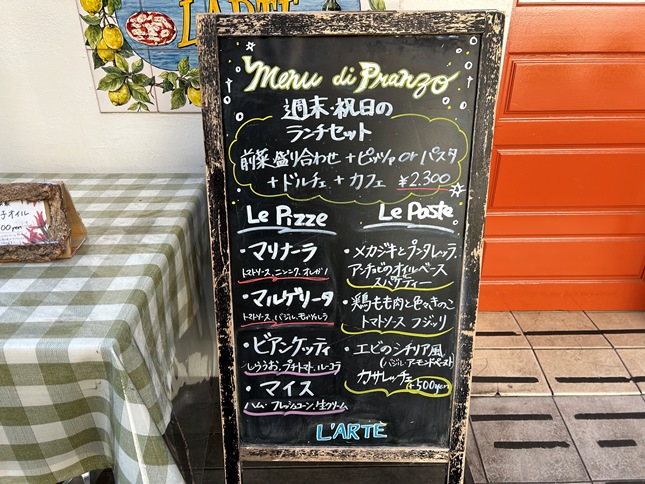 L'ARTE
Menu di Pranzo
週末・祝日の
ランチセット
前菜盛り合わせ+ピッツァ or パスタ
+ドルチェ+カフェ ¥2.300
Le Pizze
・マリナーラ
トマトソース、ニンニク、オレガノ
・マルゲリータ
トマトソース、バジル、モッツァレラ
・ビアンケッティ
しらうお、プチトマト、ルーコラ
・マイス
ハム・フレッシュコーン、生クリーム
Le Paste
・メカジキとプンタレッラ、
アンチョビのオイルベース
スパゲティー
・鶏もも肉と色々きのこ
トマトソース フジッリ
・エビのシチリア風
(バジル・アーモンドペースト)
カサレッチェ
+500yen
L'ARTE
子オイル
00yen